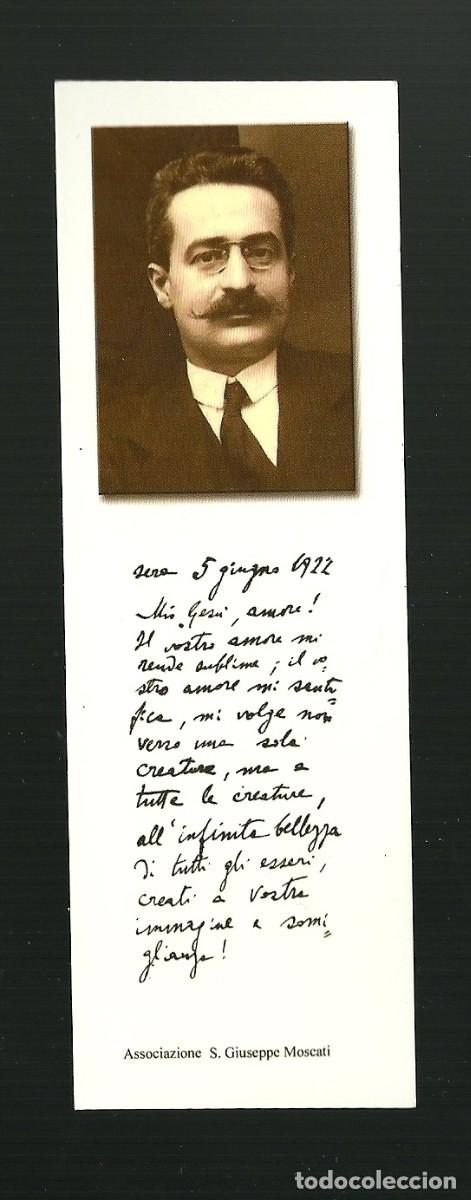 sera 5 giugno 1922
Mio Gesù, amore!
Il vostro amore mi
rende sublime; il vo=
stro amore mi santi=
fica, mi volge non
verso una sola
creatura, ma a
tutte le creature,
all'infinita bellezza
di tutti gli esseri,
creati a vostra
immagine e somi=
glianza!
Associazione S. Giuseppe Moscati
todocoleccion